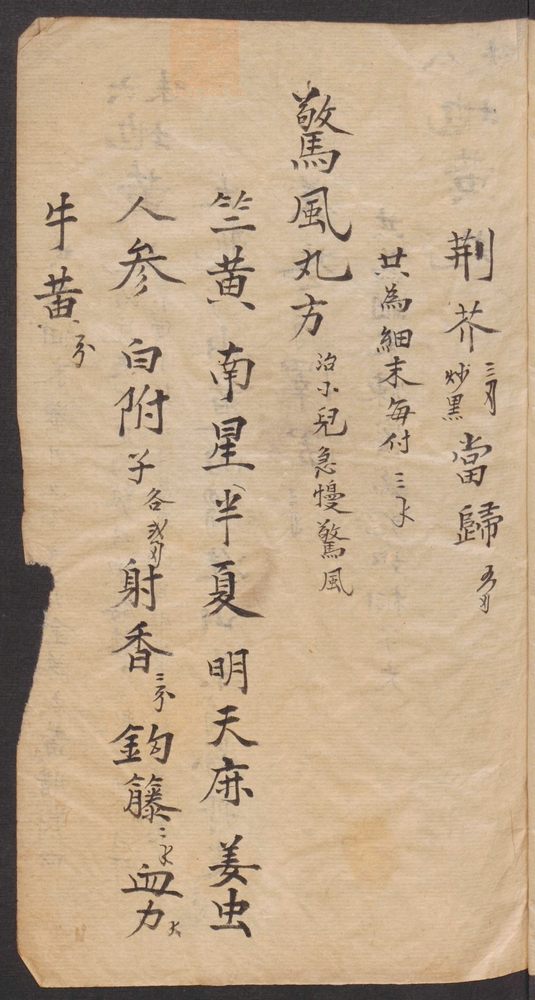 荆芥三两炒黑當歸五两
共為細末每付三水
驚風丸方治小兒急慢驚風
竺黄南星半夏明天麻姜虫
人参白附子各 射香三分鈎籐二 血力
牛黄 分